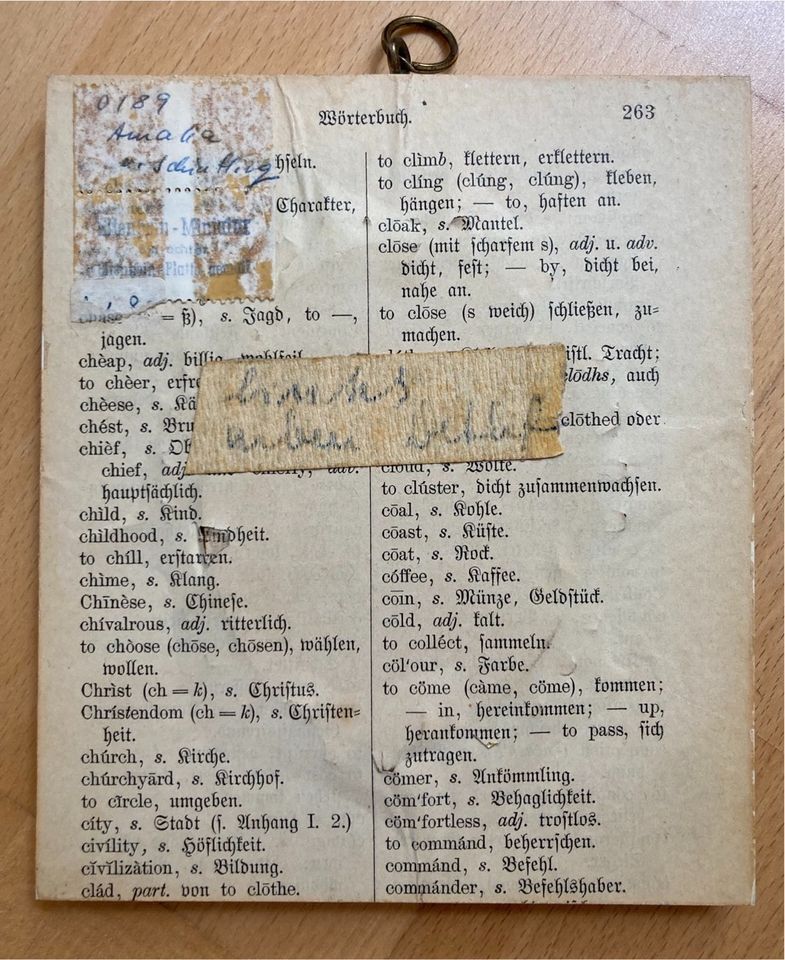 Wörterbuch. 263
0189
Amalia
hſeln.
Charakter,
= ß), s. Jagd, to —,
jagen.
chèap, adj. billig, wohlfeil.
to chèer, erfre
chèese, s. Kä
chést, s. Bru
chièf, s. Ob
chief, adj. adv.
hauptſächlich.
chìld, s. Kind.
chìldhood, s. Kindheit.
to chíll, erſtarren.
chìme, s. Klang.
Chīnèse, s. Chineſe.
chívalrous, adj. ritterlich.
to chòose (chōse, chōsen), wählen,
wollen.
Chrìst (ch = k), s. Chriſtus.
Chrístendom (ch = k), s. Chriſten=
heit.
chúrch, s. Kirche.
chúrchyārd, s. Kirchhof.
to cĩrcle, umgeben.
cíty, s. Stadt (ſ. Anhang I. 2.)
civílity, s. Höflichkeit.
cĭvĭlizàtion, s. Bildung.
clád, part. von to clōthe.
to clìmb, klettern, erklettern.
to clíng (clúng, clúng), kleben,
hängen; — to, haften an.
clōak, s. Mantel.
clōse (mit ſcharfem s), adj. u. adv.
dicht, feſt; — by, dicht bei,
nahe an.
to clōse (s weich) ſchließen, zu=
machen.
iſtl. Tracht;
clōdhs, auch
clōthed oder
cloud, s. Wolke.
to clúster, dicht zuſammenwachſen.
cōal, s. Kohle.
cōast, s. Küſte.
cōat, s. Rock.
cóffee, s. Kaffee.
coin, s. Münze, Geldſtück.
cōld, adj. kalt.
to colléct, ſammeln.
cöl'our, s. Farbe.
to cöme (càme, cöme), kommen;
— in, hereinkommen; — up,
herankommen; — to pass, ſich
zutragen.
cömer, s. Ankömmling.
cöm'fort, s. Behaglichkeit.
cöm'fortless, adj. troſtlos.
to commánd, beherrſchen.
commánd, s. Befehl.
commánder, s. Befehlshaber.